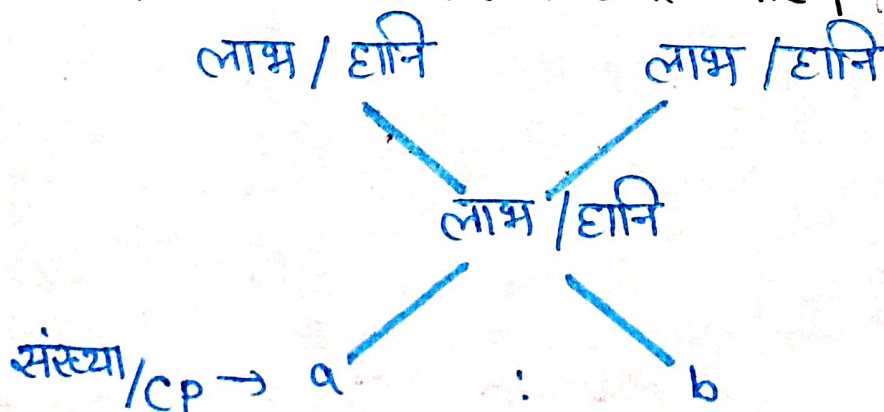 लाभ / हानि लाभ / हानि
लाभ / हानि
संख्या/CP → a : b